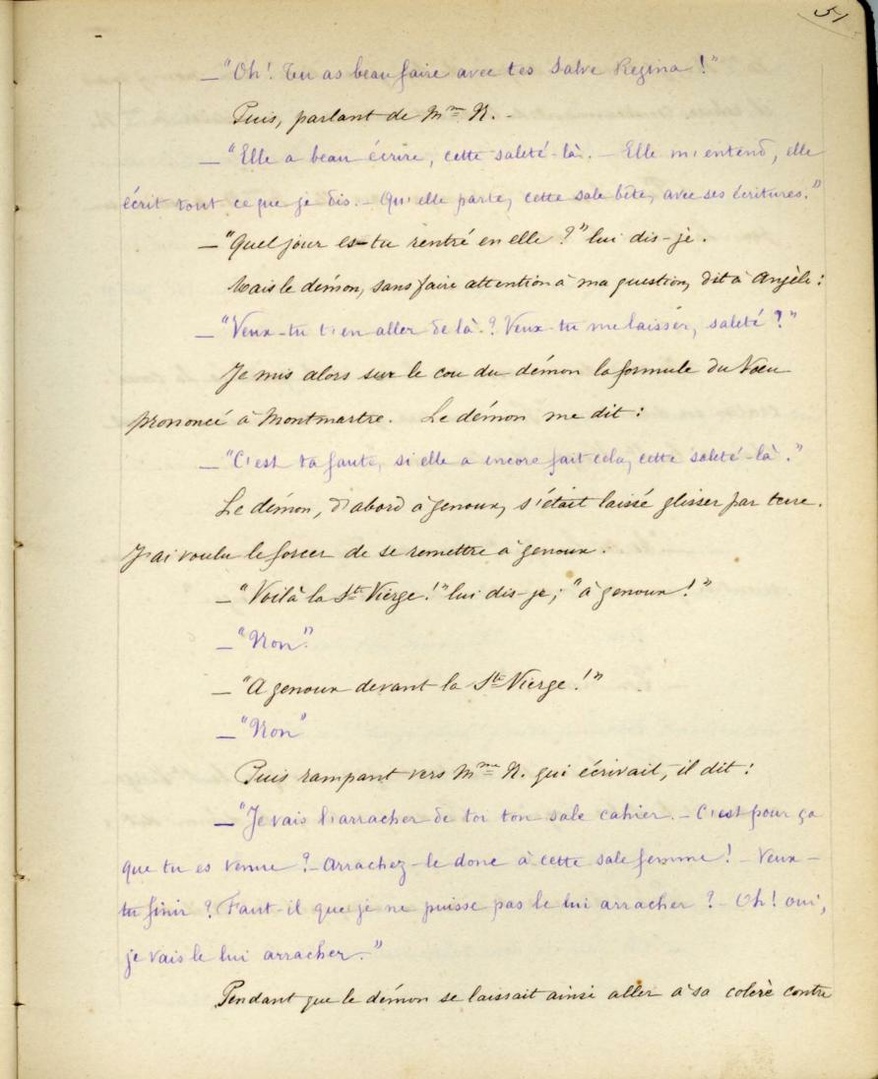 51
—"Oh! Tu as beau faire avec tes Salve Regina!"
Puis, parlant de Mme N. -
—"Elle a beau écrire, cette saleté-là. — Elle m'entend, elle
écrit tout ce que je dis. — Qu'elle parte, cette sale bête, avec ses écritures."
—"Quel jour es-tu rentré en elle?" lui dis-je.
Mais le démon, sans faire attention à ma question, dit à Angèle:
—"Veux-tu t'en aller de là? Veux-tu me laisser, saleté?"
Je mis alors sur le cou du démon la formule du Vœu
prononcé à Montmartre. Le démon me dit:
—"C'est ta faute, si elle a encore fait cela, cette saleté-là."
Le démon, d'abord à genoux, s'était laissé glisser par terre.
J'ai voulu le forcer de se remettre à genoux.
—"Voilà la Ste Vierge!" lui dis-je; "à genoux!"
—"Non"
—"A genoux devant la Ste Vierge!"
—"Non"
Puis rampant vers Mme N. qui écrivait, il dit:
—"Je vais l'arracher de toi ton sale cahier. — C'est pour ça
que tu es venue? — Arrachez-le donc à cette sale femme! — Veux-
tu finir? Faut-il que je ne puisse pas le lui arracher? — Oh! oui,
je vais le lui arracher."
Pendant que le démon se laissait ainsi aller à sa colère contre